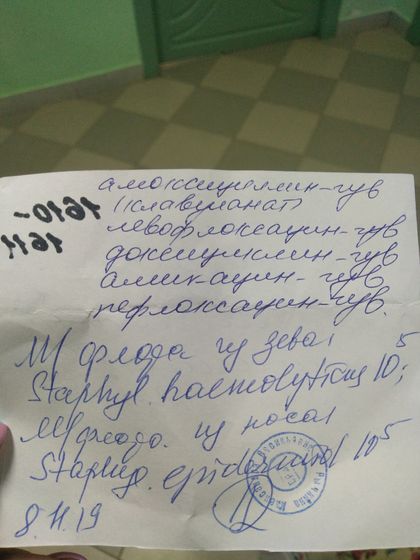 амоксициллин-чув
(клавуланат)
левофлоксацин-чув
доксициклин-чув
амикацин-чув
пефлоксацин-чув.
1610-
1611
М/флора из зева
Staphyl. haemolyticus 10⁵;
М/флора из носа
Staphyl. epidermid 10⁵
8.11.19